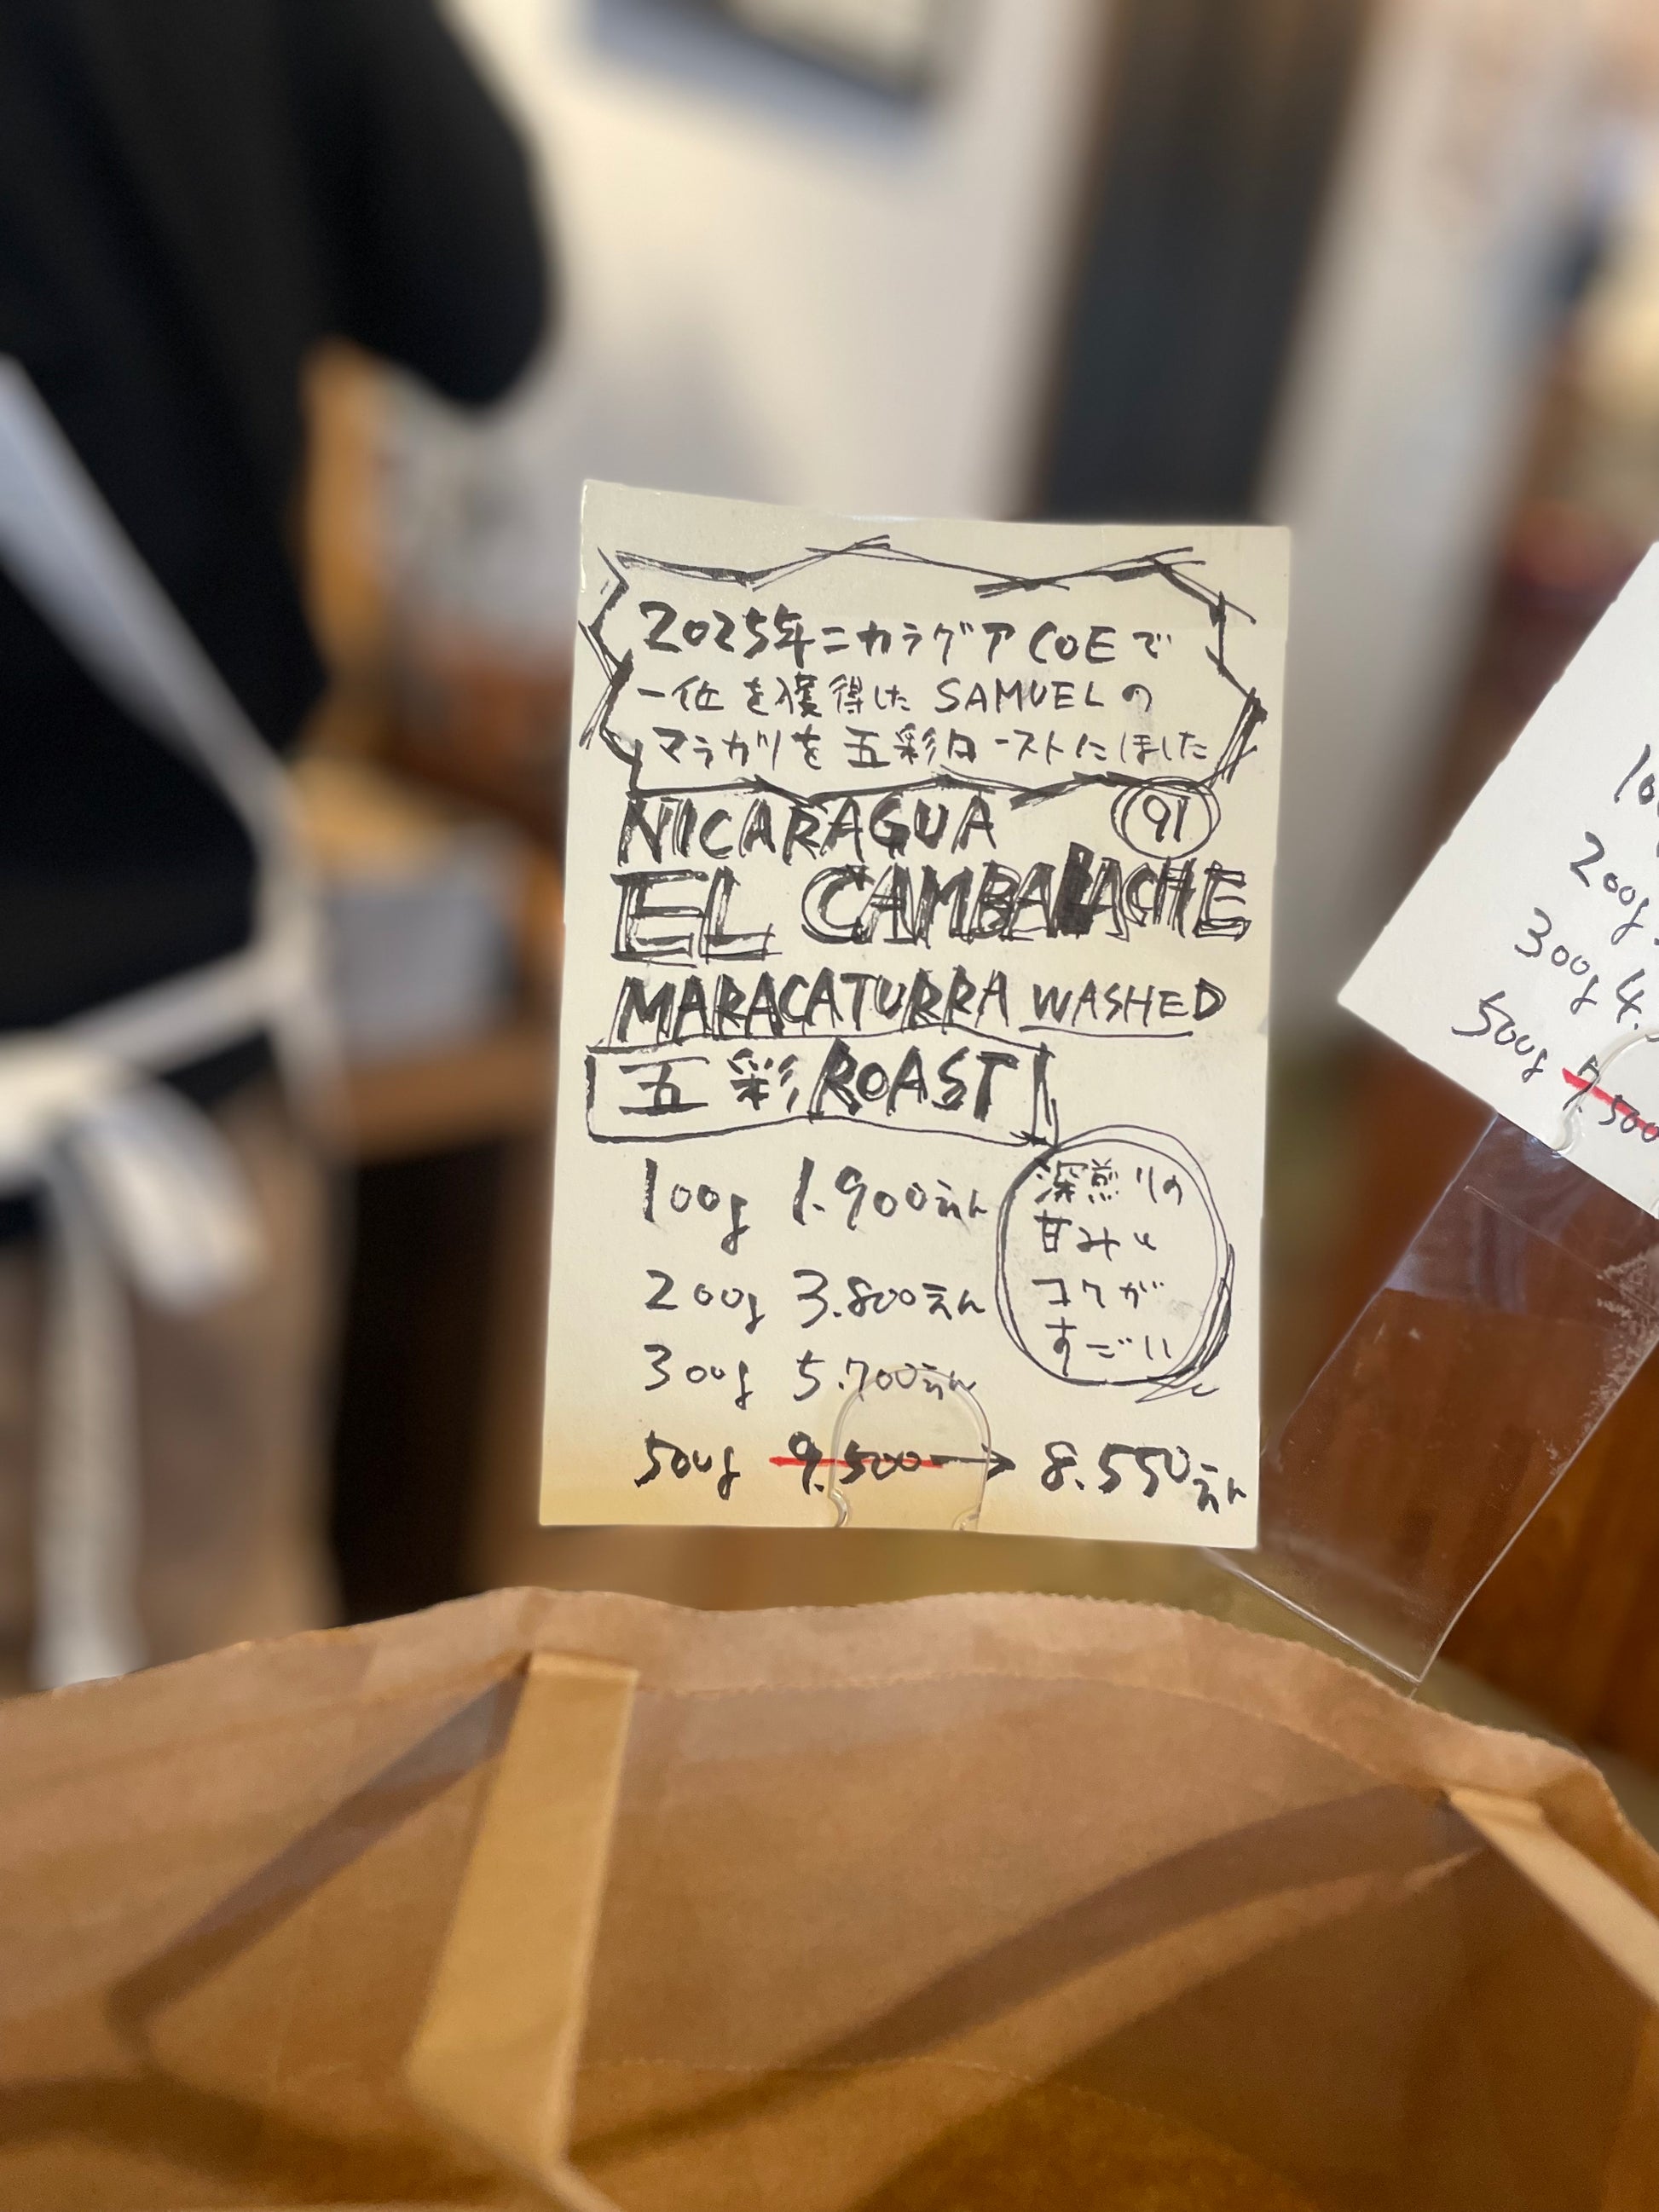 2025年ニカラグア COEで
一位を獲得した SAMUELの
マラカツを五彩ローストにしました
NICARAGUA 91
EL CAMBALACHE
MARACATURRA WASHED
五彩ROAST
100g 1.900えん
200g 3.800えん
300g 5.700えん
500g 9.500→8.550えん
深煎りの
甘みと
コクが
すごい
200g
300g 4.
500g 7.500